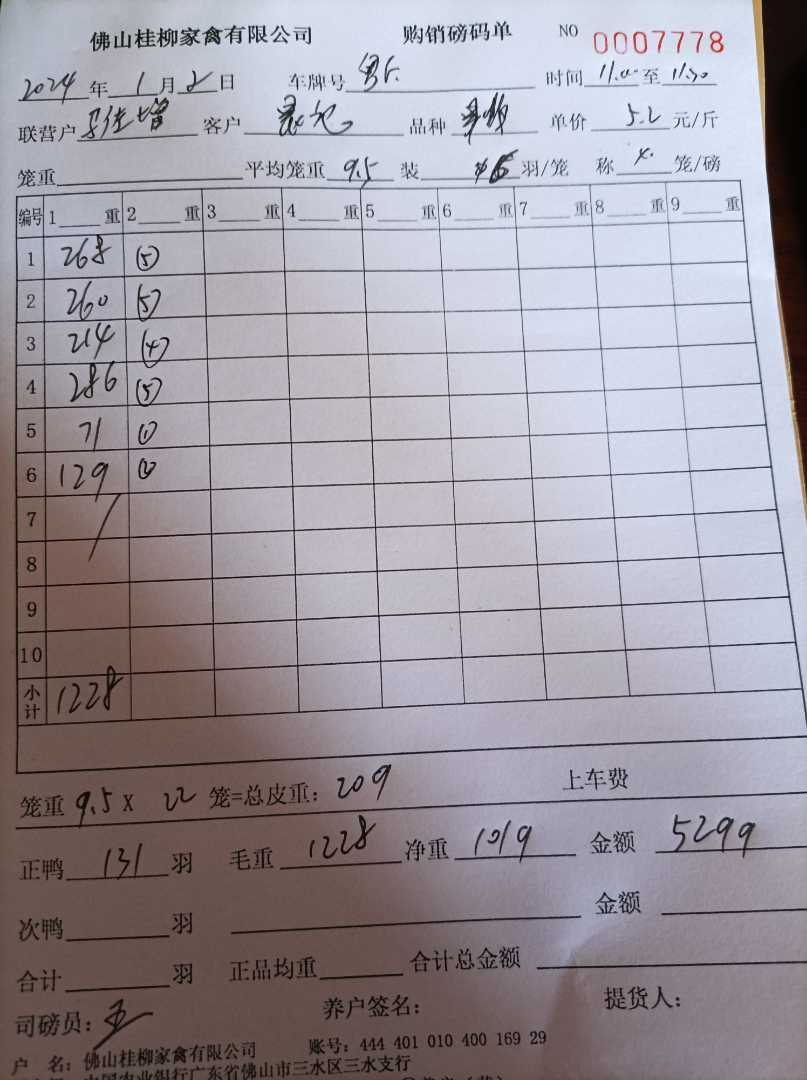 佛山桂柳家禽有限公司 购销磅码单 NO 0007778
2024年1月2日 车牌号 时间11.00至11.30
联营户 客户 品种 单价5.2元/斤
笼重 平均笼重9.5 装 6羽/笼 称 笼/磅
编号 1 重 2 重 3 重 4 重 5 重 6 重 7 重 8 重 9 重
1 268 (5)
2 260 (5)
3 214 (4)
4 286 (5)
5 71 (1)
6 129 (2)
7
8
9
10
小计 1228
笼重9.5X 22笼=总皮重:209 上车费
正鸭131羽 毛重1228净重1019 金额5299
次鸭 羽 金额
合计 羽 正品均重 合计总金额
司磅员:王 养户签名: 提货人:
户 名:佛山桂柳家禽有限公司 账号:444 401 010 400 169 29
中国农业银行广东省佛山市三水区三水支行